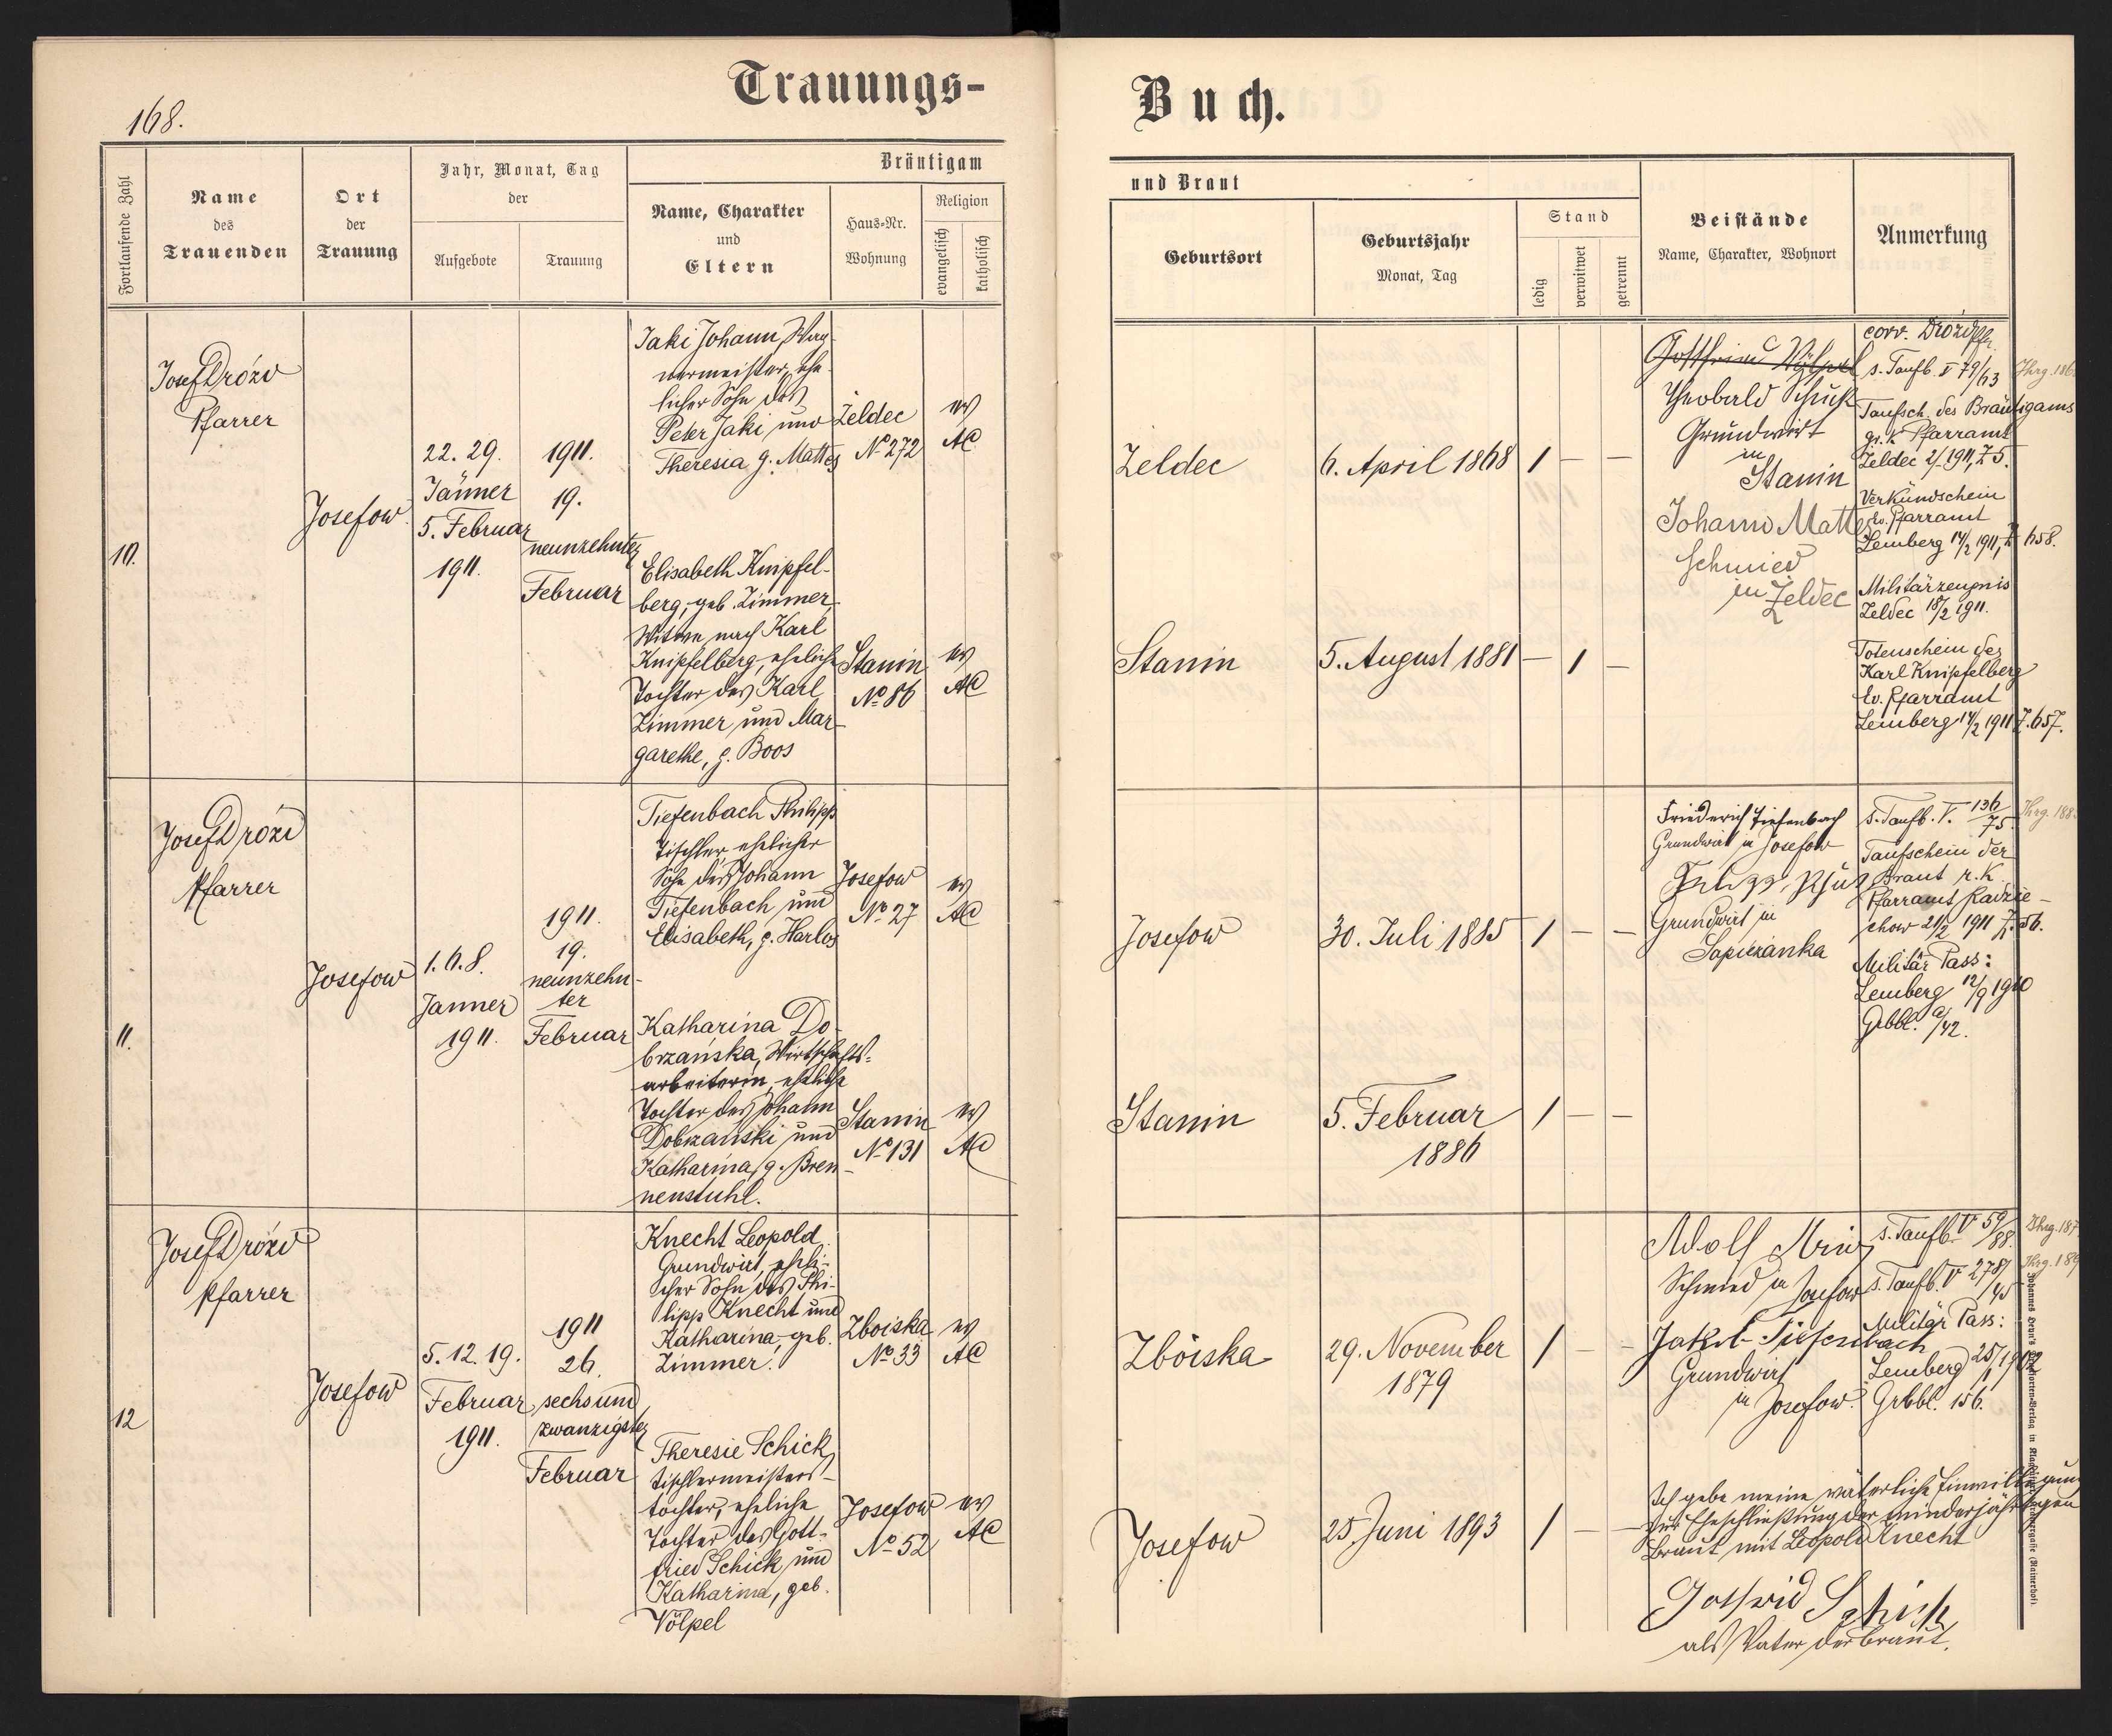 Trauungs-
Buch.
168.
Fortlaufende Zahl
Name
des
Trauenden
Ort
der
Trauung
Jahr, Monat, Tag
der
Aufgebote
Trauung
Bräutigam
Name, Charakter
und
Eltern
Haus-Nr.
Wohnung
Religion
evangelisch
katholisch
und Braut
Geburtsort
Geburtsjahr
Monat, Tag
Stand
ledig
verwitwet
getrennt
Beistände
Name, Charakter, Wohnort
Anmerkung
10.
Josef Drózd
Pfarrer
Josefow
22. 29.
Jänner
5. Februar
1911.
1911.
19.
neunzehnter
Februar
Jaki Johann, Wag-
nermeister, ehe-
licher Sohn des
Peter Jaki und
Theresia g. Mattes
Żeldec
No 272
ev
AC
Elisabeth Knipfel-
berg, geb. Zimmer,
Witwe nach Karl
Knipfelberg, eheliche
Tochter des Karl
Zimmer und Mar-
garethe, g. Boos
Stanin
No 86
ev
AC
Żeldec
6. April 1868
1 — —
Stanin
5. August 1881
— 1 —
Theobald Schick
Grundwirt
in
Stanin
Johann Mattes
Schmied
in Żeldec
corr. Drózd Pfr.
s. Taufb. V 79/63
Taufsch. des Bräutigams
gr. k. Pfarramt
Żeldec 2/ 1911, Z 5.
Verkündschein
Ev. Pfarramt
Lemberg 14/2 1911, Z 658.
Militärzeugnis
Żeldec 18/2 1911.
Totenschein des
Karl Knipfelberg
Ev. Pfarramt
Lemberg 14/2 1911 Z. 657.
11.
Josef Drózd
Pfarrer
Josefow
1. 6. 8.
Janner
1911.
1911.
19.
neunzehn-
ter
Februar
Tiefenbach Philipp
Tischler, ehelicher
Sohn des Johann
Tiefenbach und
Elisabeth, g. Harlos
Josefow
No 27
ev
AC
Katharina Do-
brzańska, Wirtschafts-
arbeiterin, eheliche
Tochter des Johann
Dobrzański und
Katharina, g. Bren-
nenstuhl.
Stanin
No 131
ev
AC
Josefow
30. Juli 1885
1 — —
Stanin
5. Februar
1886
1 — —
Friederich Tiefenbach
Grundwirt in Josefow
Grundwirt in
Sapieżanka
s. Taufb. V. 136/75
Taufschein der
Braut r. k.
Pfarramt Radzie-
chow 21/2 1911 Z. 56.
Militär Pass:
Lemberg 12/9 1910
Grbbl. a/42.
12
Josef Drózd
Pfarrer
Josefow
5. 12. 19.
Februar
1911.
1911
26.
sechsund
zwanzigster
Februar
Knecht Leopold
Grundwirt, eheli-
cher Sohn des Phi-
lipp Knecht und
Katharina, geb.
Zimmer.
Zboiska
No 33
ev
AC
Theresie Schick
Tischlermeisters-
tochter, eheliche
Tochter des Gott-
fried Schick und
Katharina, geb.
Völpel
Josefow
No 52
ev
AC
Zbóiska
29. November
1879
1 — —
Josefow
25. Juni 1893
1 — —
Adolf
Schmied in Josefow
Jakob Tiefenbach
Grundwirt
in Josefow.
s. Taufb. V 59/88.
s. Taufb. V 278/45
Militär Pass:
Lemberg 25/1 1902
Grbbl. 156.
Ich gebe meine väterliche Einwilligung
zur Eheschließung der minderjährigen
Braut mit Leopold Knecht
Gottfrid Schick
als Vater der Braut.